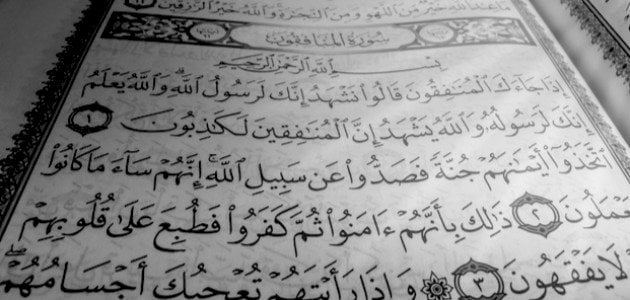 مَا عِندَ ٱللَّهِ خَيۡرٌ مِّنَ ٱللَّهۡوِ وَمِنَ ٱلتِّجَٰرَةِۚ وَٱللَّهُ خَيۡرُ ٱلرَّٰزِقِينَ
سُورَةُ المُنَافِقُونَ
بِسۡمِ ٱللَّهِ ٱلرَّحۡمَٰنِ ٱلرَّحِيمِ
إِذَا جَآءَكَ ٱلۡمُنَٰفِقُونَ قَالُواْ نَشۡهَدُ إِنَّكَ لَرَسُولُ ٱللَّهِۗ وَٱللَّهُ يَعۡلَمُ
إِنَّكَ لَرَسُولُهُۥ وَٱللَّهُ يَشۡهَدُ إِنَّ ٱلۡمُنَٰفِقِينَ لَكَٰذِبُونَ ١
ٱتَّخَذُوٓاْ أَيۡمَٰنَهُمۡ جُنَّةٗ فَصَدُّواْ عَن سَبِيلِ ٱللَّهِۚ إِنَّهُمۡ سَآءَ مَا كَانُواْ
يَعۡمَلُونَ ٢ ذَٰلِكَ بِأَنَّهُمۡ ءَامَنُواْ ثُمَّ كَفَرُواْ فَطُبِعَ عَلَىٰ قُلُوبِهِمۡ
لَا يَفۡقَهُونَ ٣ وَإِذَا رَأَيۡتَهُمۡ تُعۡجِبُكَ أَجۡسَامُهُمۡۖ